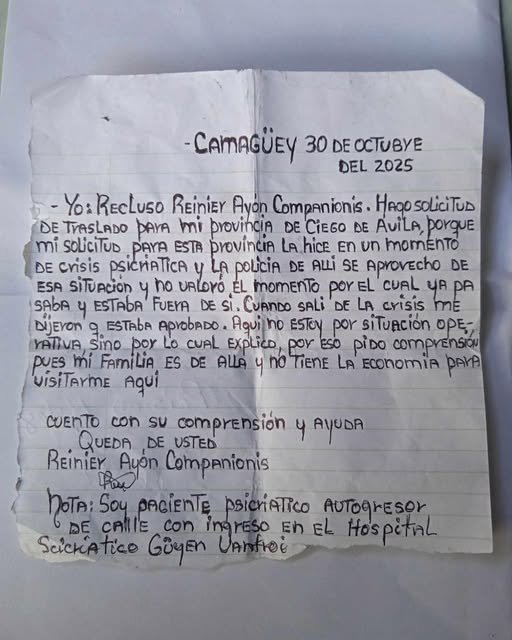 - CAMAGÜEY 30 DE OCTUBYE
DEL 2025
- Yo: RECLUSO REINIER AYÓN COMPANIONIS. HAGO SOLICITUD
DE TRASLADO PARA MI PROVINCIA DE CIEGO DE AVILA, PORQUE
MI SOLICITUD PARA ESTA PROVINCIA LA HICE EN UN MOMENTO
DE CRISIS PSICRIATICA Y LA POLICIA DE ALLI SE APROVECHO DE
ESA SITUACIÓN Y NO VALORÓ EL MOMENTO POR EL CUAL YA PA
SABA Y ESTABA FUERA DE SI. CUANDO SALI DE LA CRISIS ME
DIJERON q ESTABA APROBADO. AQUI NO ESTOY POR SITUACIÓN OPE
RATIVA SINO POR LO CUAL EXPLICO, POR ESO PIDO COMPRENSIÓN
PUES MI FAMILIA ES DE ALLA Y NO TIENE LA ECONOMIA PARA
VISITARME AQUI
CUENTO CON SU COMPRENSIÓN Y AYUDA
QUEDA DE USTED
REINIER AYÓN COMPANIONIS
NOTA: SOY PACIENTE PSICRIATICO AUTOGRESOR
DE CALLE CON INGRESO EN EL HOSPITAL
SCICRIATICO GÜYEN